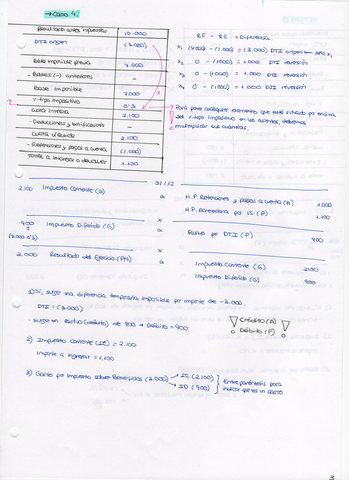 → Caso 4.
Resultado antes impuestos 10.000
DTI origen (3.000)
Base imponible previa 7.000
- Bases (-) anteriores -
Base imponible 7.000
x tipo impositivo 0'3
Cuota íntegra 2.100
- Deducciones y bonificaciones -
Cuota líquida 2.100
- Retenciones y pagos a cuenta (1.000)
Total a ingresar o devolver 1.100
= Diferencia
x1 (4.000) - (1.000) = (3.000) DTI origen en Año x1
x2 0 - (1.000) = 1.000 DTI reversión
x3 0 - (1.000) = 1.000 DTI reversión
x4 0 - (1.000) = 1.000 DTI reversión
Para pasar cualquier elemento que esté situado por encima
del x tipo impositivo en los asientos, debemos
multiplicar sus cuantías.
31/12
2.100 Impuesto Corriente (G)
a H.P. Retenciones y pagos a cuenta (A) 1.000
H.P. Acreedora por IS (P) 1.100
x
900 Impuesto Diferido (G)
a Pasivo por DTI (P) 900
(3.000·0'3)
x
3.000 Resultado del Ejercicio (PN)
a Impuesto Corriente (G) 2100
Impuesto Diferido (G) 900
1) Sí, surge una diferencia temporaria imponible por importe de -3.000.
DTI = (3.000)
Surge un Pasivo (débito) de 900 → Débito = 900
Crédito (A)
Débito (P)
2) Impuesto Corriente (IC) = 2.100
Importe a ingresar = 1.100
3) Gasto por Impuesto sobre Beneficios (3.000) → IC (2.100)
→ ID (900)
Entre paréntesis para
indicar que es un GASTO.
3